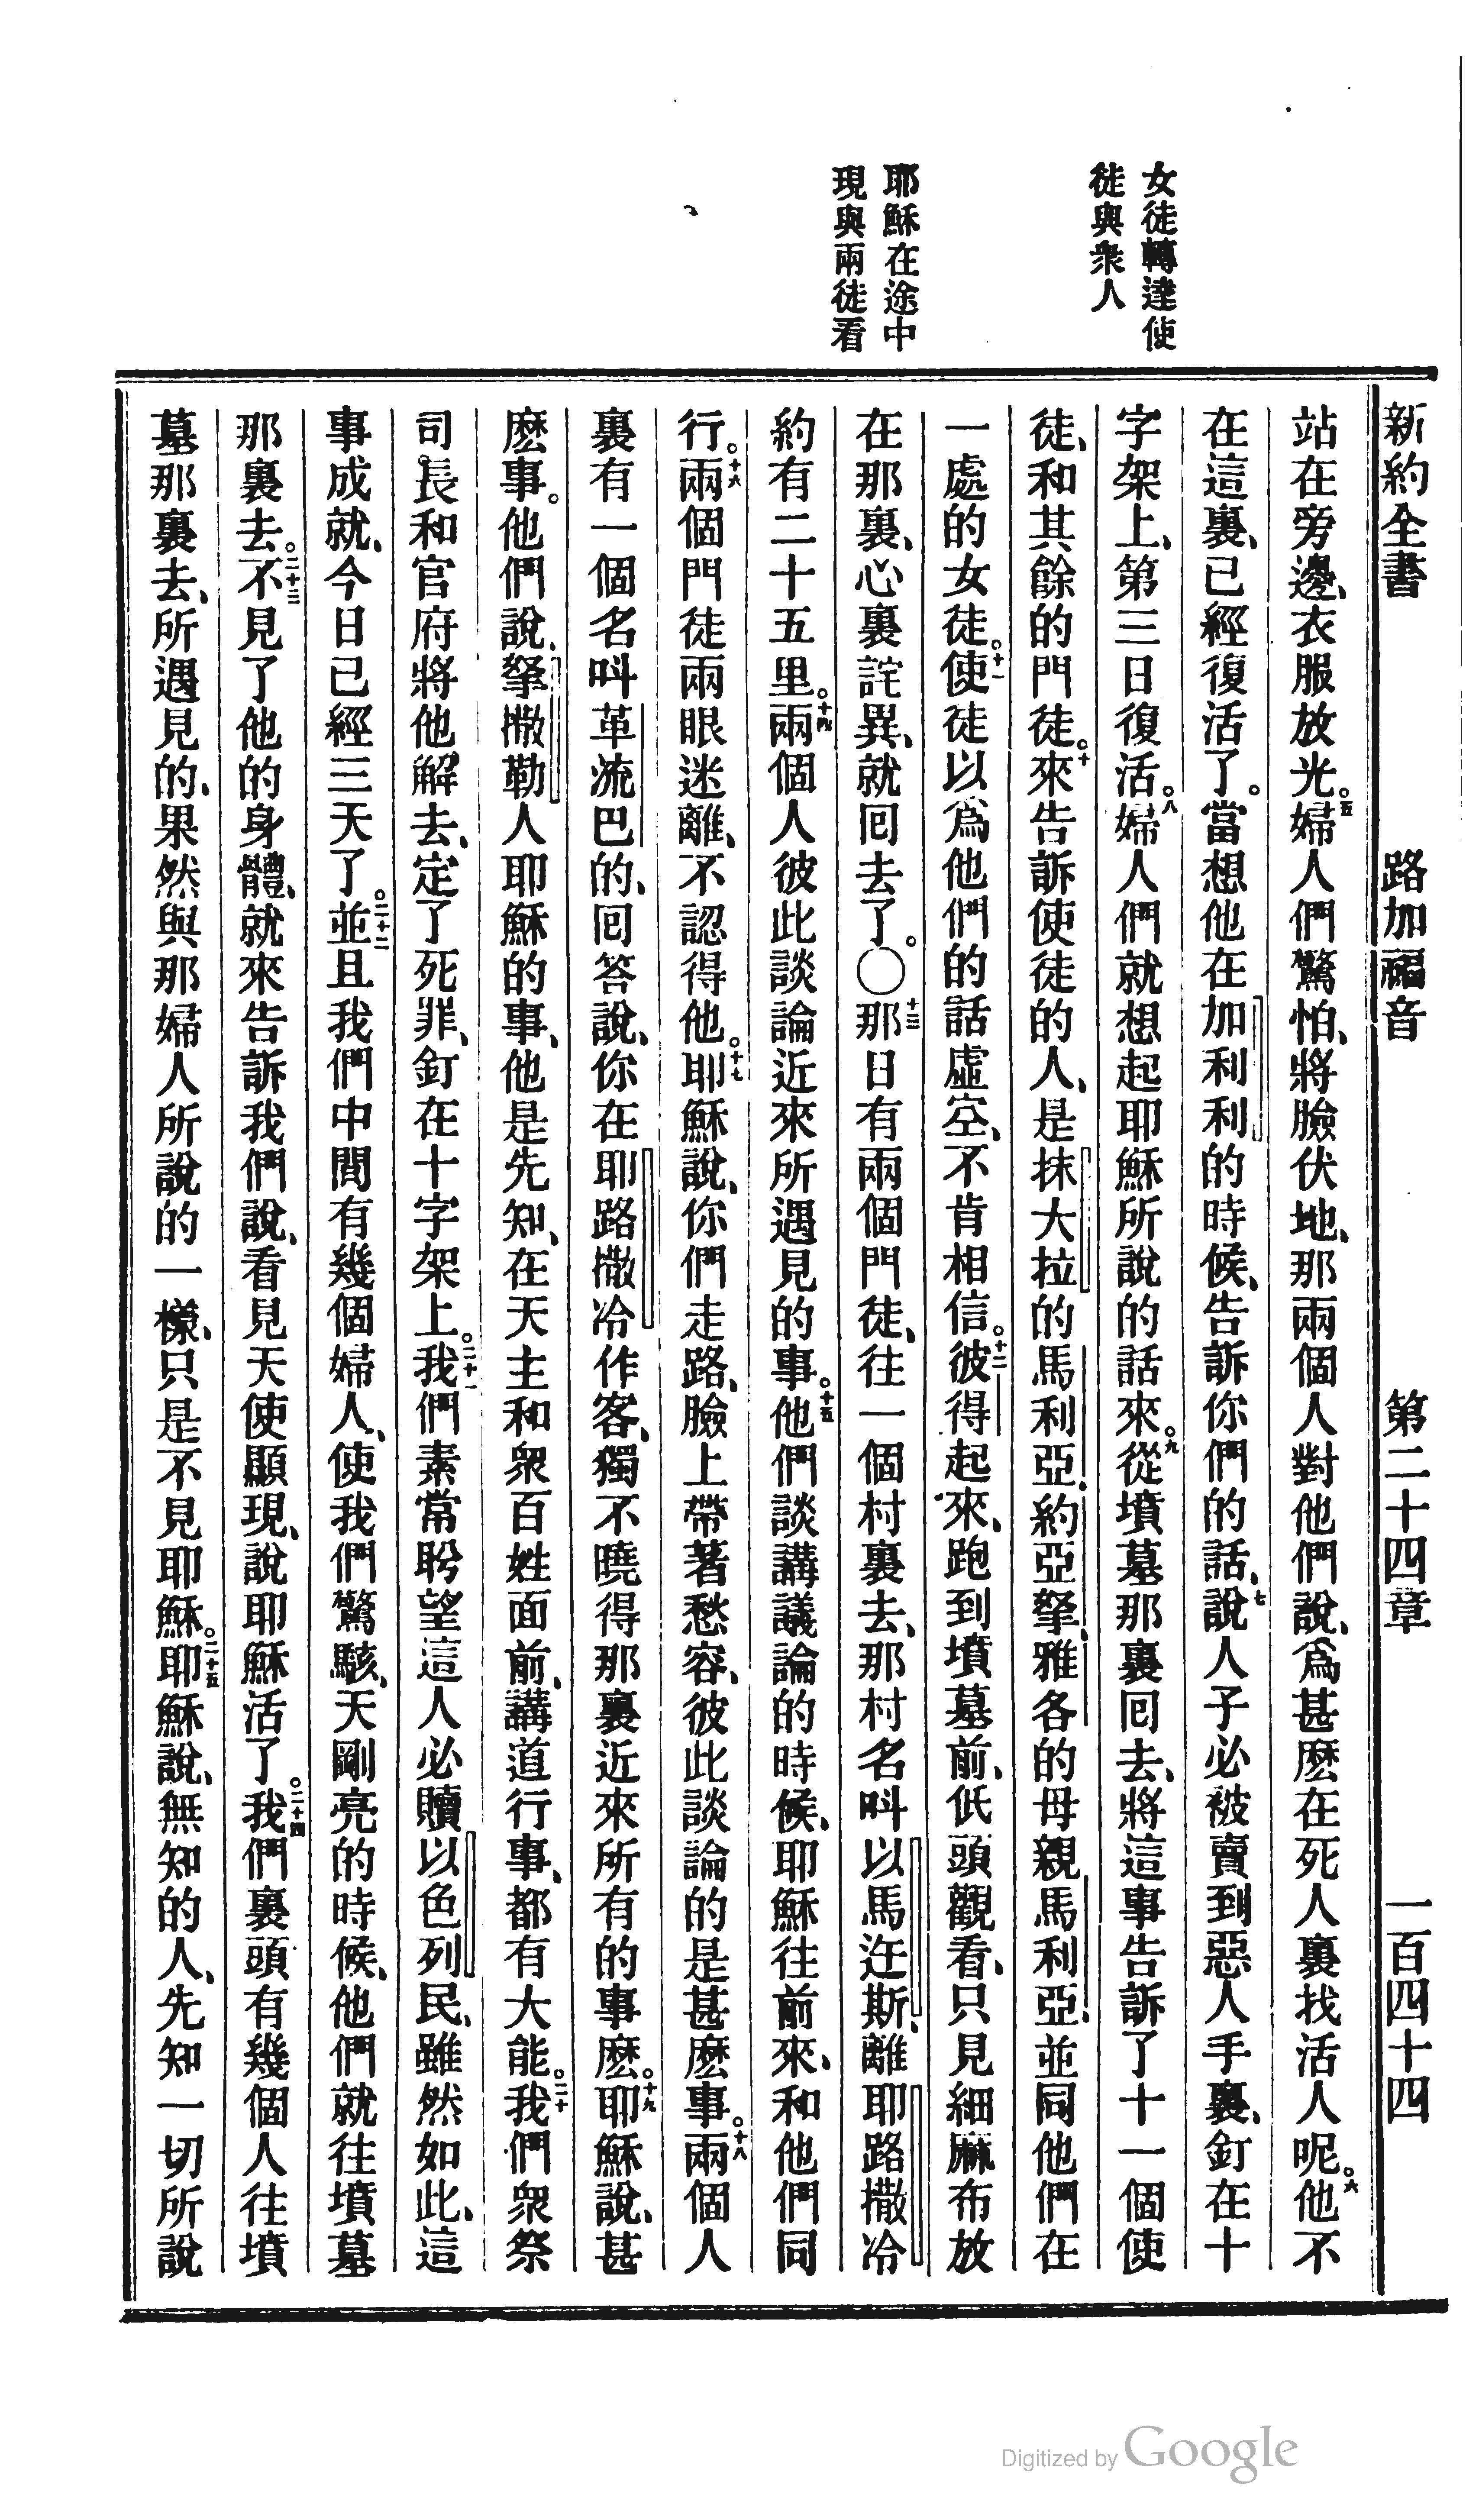 新約全書 路加福音 第二十四章 一百四十四
女徒轉達使
徒與衆人
耶穌在途中
現與兩徒看
站在旁邊、衣服放光。五婦人們驚怕、將臉伏地、那兩個人對他們說、爲甚麽在死人裏找活人呢。六他不
在這裏、已經復活了。當想他在加利利的時候、告訴你們的話、七說人子必被賣到惡人手裏、釘在十
字架上、第三日復活。八婦人們就想起耶穌所說的話來。九從墳墓那裏回去、將這事告訴了十一個使
徒、和其餘的門徒。十來告訴使徒的人、是抹大拉的馬利亞、約亞拏、雅各的母親馬利亞、並同他們在
一處的女徒。十一使徒以爲他們的話虛空、不肯相信。十二彼得起來、跑到墳墓前、低頭觀看、只見細麻布放
在那裏、心裏詫異、就回去了。〇十三那日有兩個門徒、往一個村裏去、那村名呌以馬迕斯、離耶路撒冷
約有二十五里。十四兩個人彼此談論近來所遇見的事。十五他們談講議論的時候、耶穌往前來、和他們同
行。十六兩個門徒兩眼迷離、不認得他。十七耶穌說、你們走路、臉上帶著愁容、彼此談論的是甚麽事。十八兩個人
裏有一個名呌革流巴的、回答說、你在耶路撒冷作客、獨不曉得那裏近來所有的事麽。十九耶穌說、甚
麽事。他們說、拏撒勒人耶穌的事、他是先知、在天主和衆百姓面前、講道行事、都有大能。二十我們衆祭
司長和官府將他解去、定了死罪、釘在十字架上。二十一我們素常盼望這人必贖以色列民、雖然如此、這
事成就、今日已經三天了。二十二並且我們中間有幾個婦人、使我們驚駭、天剛亮的時候、他們就往墳墓
那裏去。二十三不見了他的身體、就來告訴我們說、看見天使顯現、說耶穌活了。二十四我們裏頭有幾個人往墳
墓那裏去、所遇見的、果然與那婦人所說的一樣、只是不見耶穌。二十五耶穌說、無知的人、先知一切所說
Digitized by Google